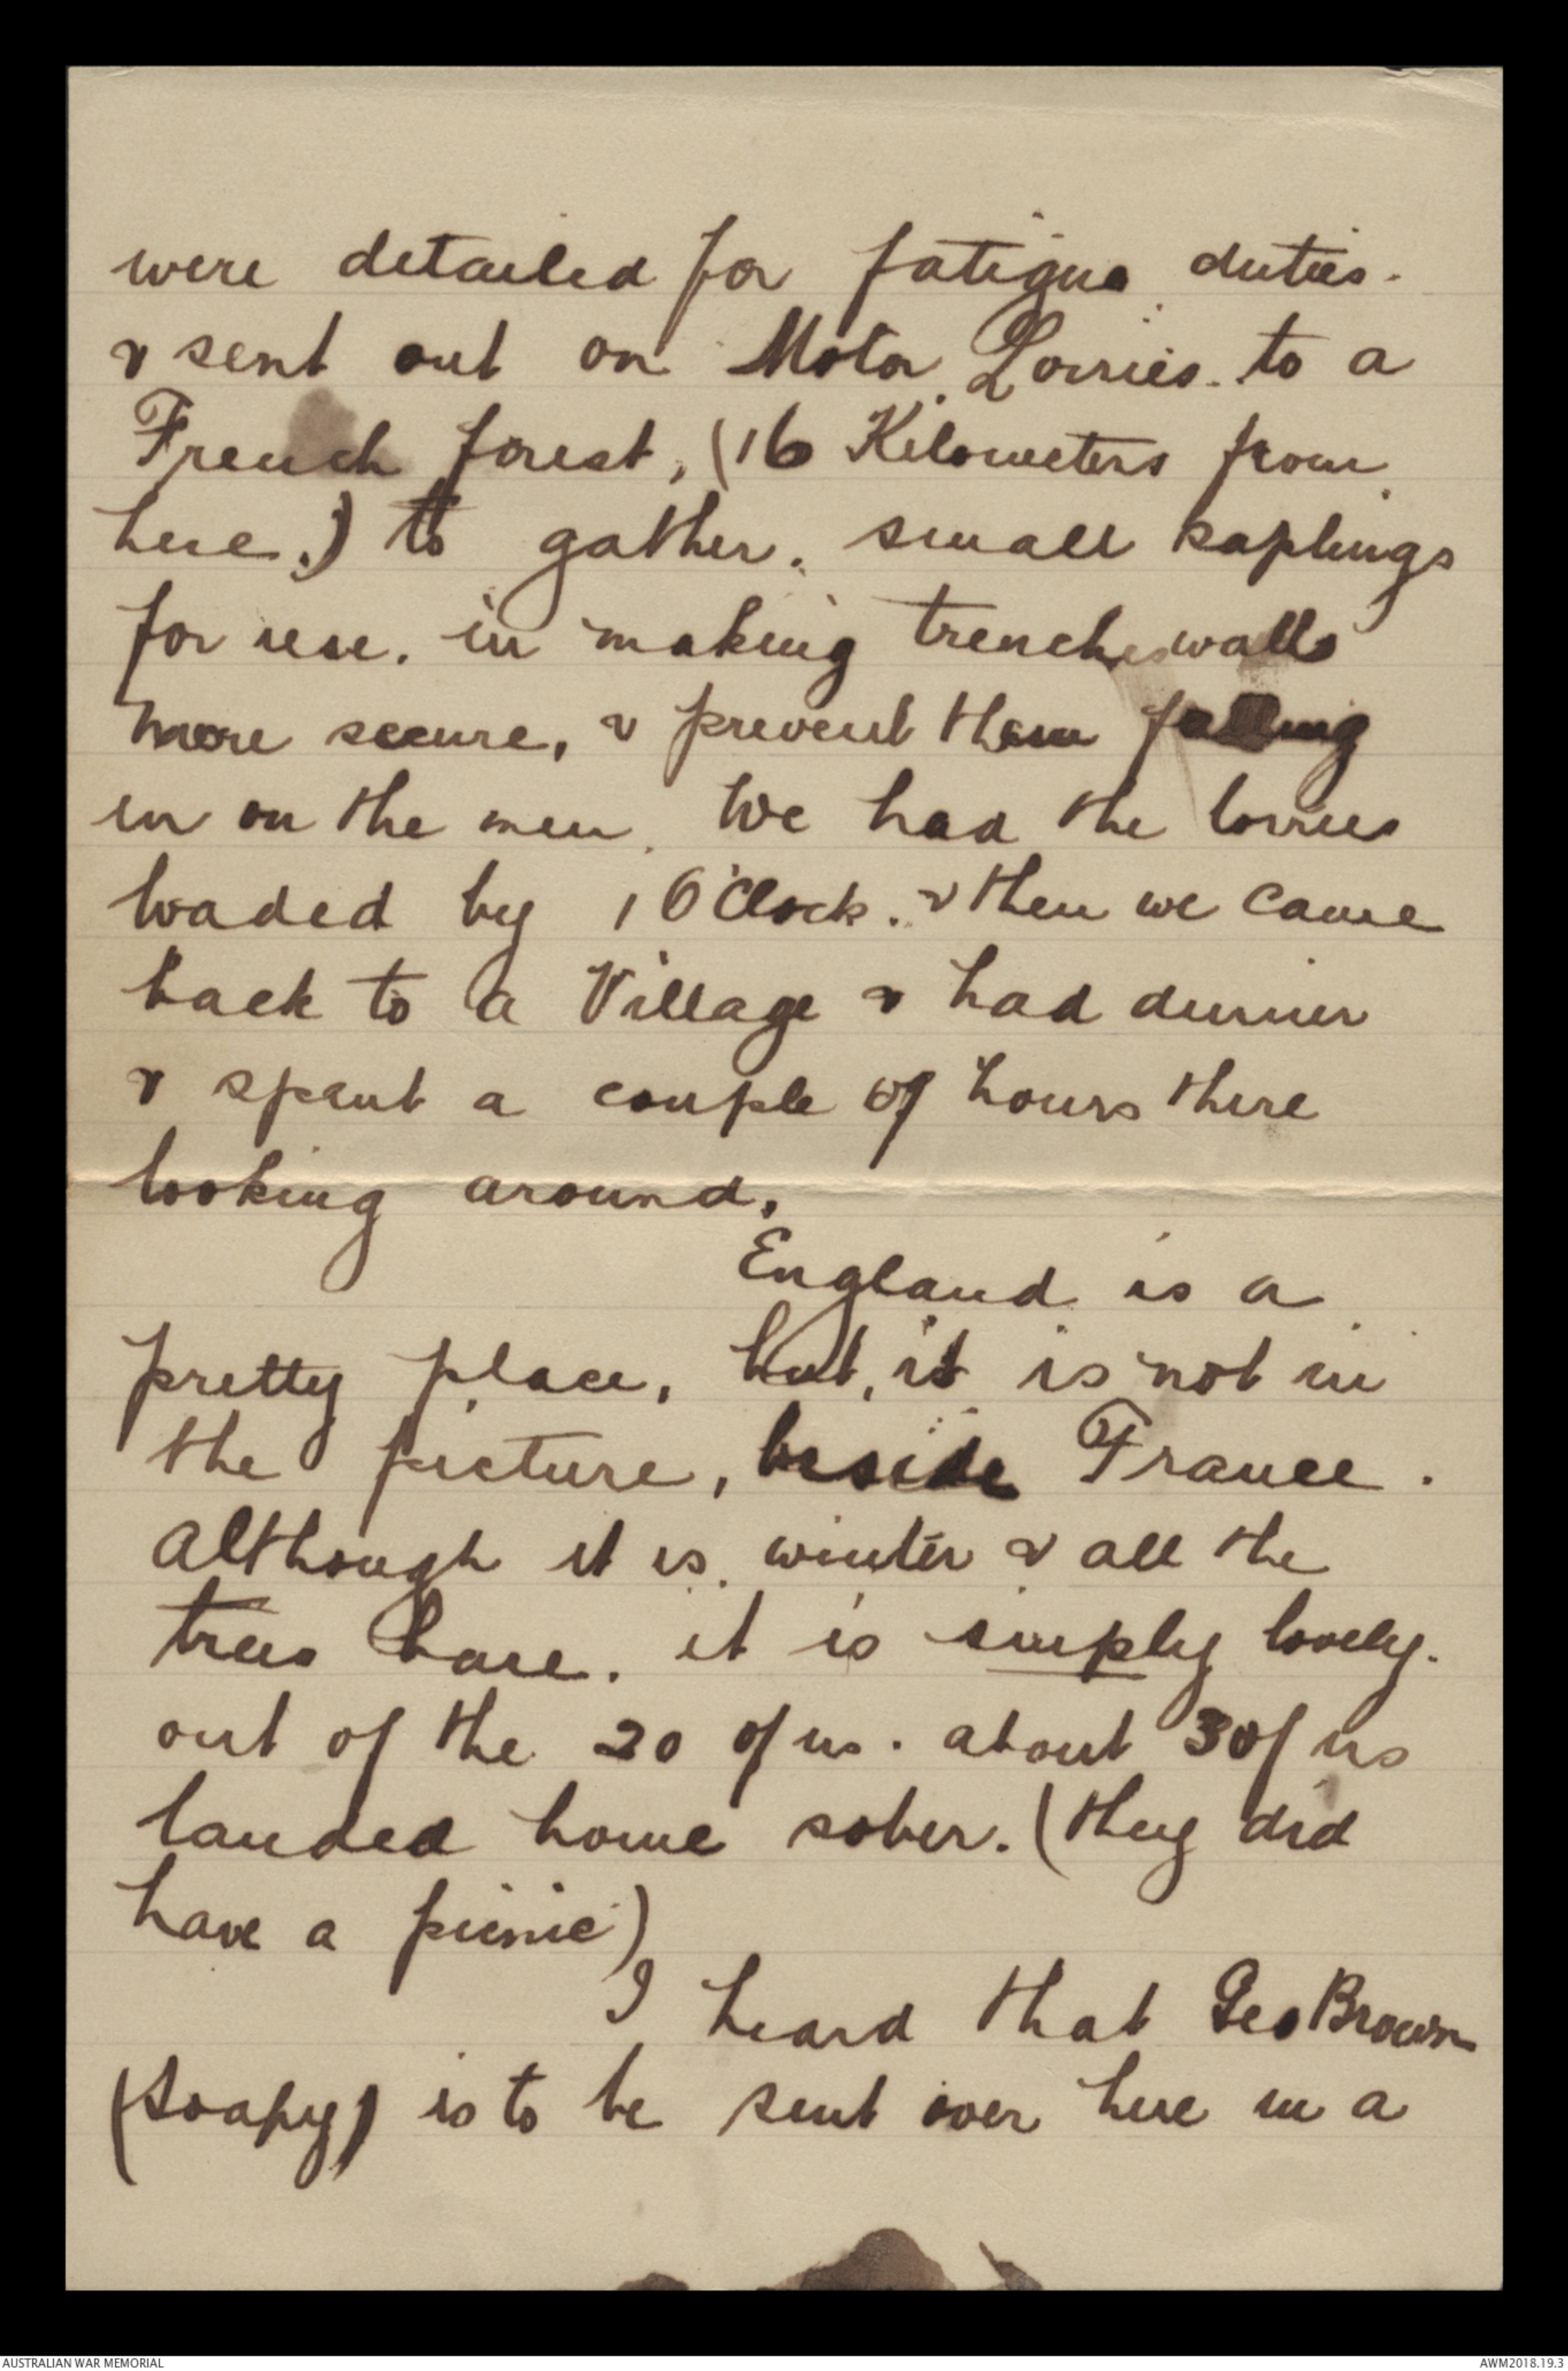 were detailed for fatigue duties.
& sent out on Motor Lorries. to a
French forest, (16 Kilometers from
here.) to gather. small saplings
for use. in making trenches walls
more secure, & prevent them falling
in on the men. We had the lorries
loaded by 1 O'Clock. & then we came
back to a Village & had dinner
& spent a couple of hours there
looking around.
England is a
pretty place, but, it is not in
the picture, beside France.
Although it is winter & all the
trees bare. it is simply lovely.
out of the 20 of us. about 3 of us
landed home sober. (they did
have a picnic)
I heard that Geo Brown
(Soapy) is to be sent over here in a
AUSTRALIAN WAR MEMORIAL
AWM2018.19.3